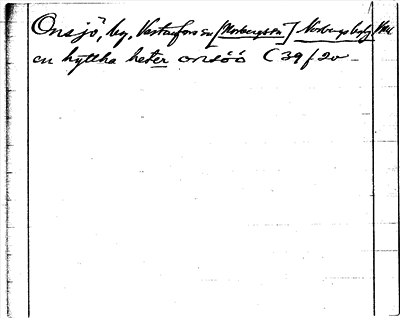 Onsjö, by, Västanfors sn [Norbergs sn] Norbergs bgslg Vml
en hyttha heter onsöö C 39 f 20